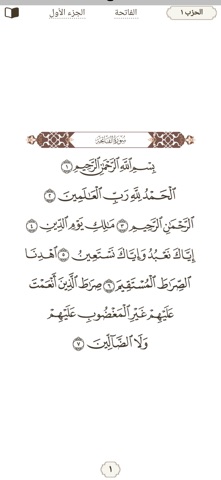 الحزب ١ الفاتحة الجزء الأول
سورة الفاتحة
بِسْمِ ٱللَّهِ ٱلرَّحْمَٰنِ ٱلرَّحِيمِ ١
ٱلْحَمْدُ لِلَّهِ رَبِّ ٱلْعَٰلَمِينَ ٢
ٱلرَّحْمَٰنِ ٱلرَّحِيمِ ٣ مَٰلِكِ يَوْمِ ٱلدِّينِ ٤
إِيَّاكَ نَعْبُدُ وَإِيَّاكَ نَسْتَعِينُ ٥ ٱهْدِنَا
ٱلصِّرَٰطَ ٱلْمُسْتَقِيمَ ٦ صِرَٰطَ ٱلَّذِينَ أَنْعَمْتَ
عَلَيْهِمْ غَيْرِ ٱلْمَغْضُوبِ عَلَيْهِمْ
وَلَا ٱلضَّآلِّينَ ٧
١